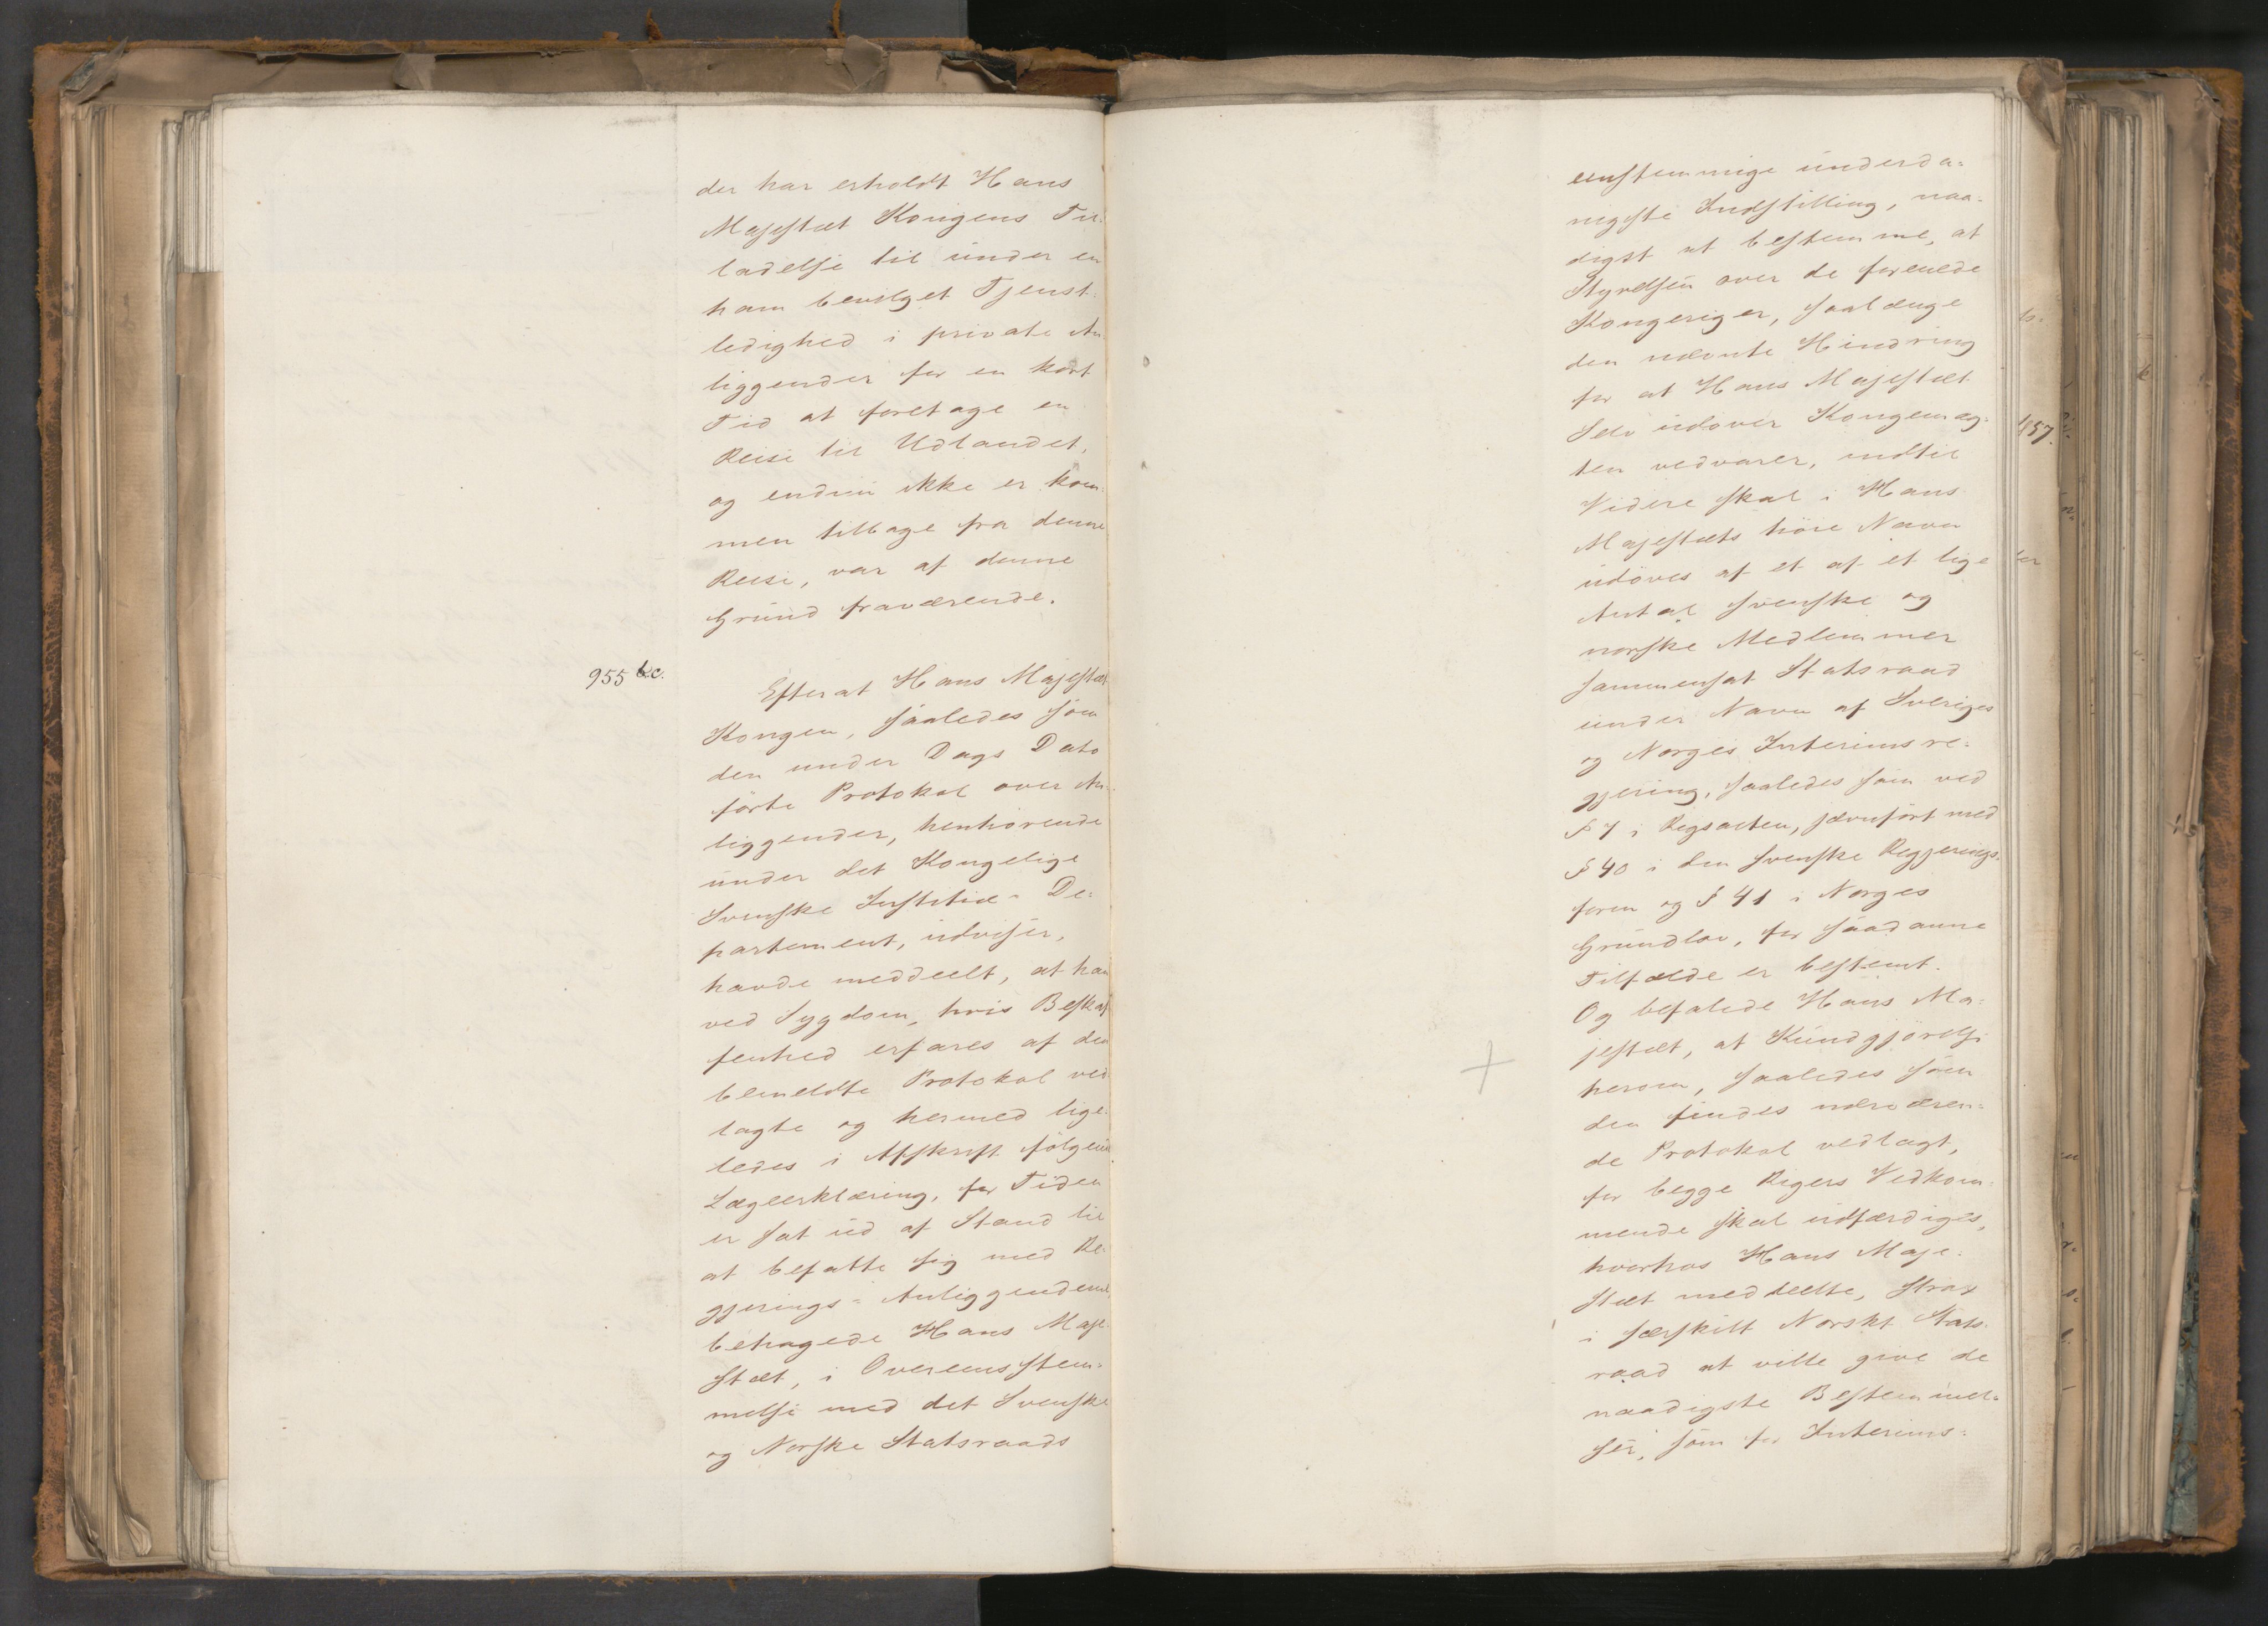 der har erholdt Hans
Majestæt Kongens Til-
ladelse til under en
ham bevilget Tjenst-
ledighed i private An-
liggender for en kort
Tid at foretage en
Reise til Udlandet,
og endnu ikke er kom-
men tilbage fra denne
Reise, var af denne
Grund fraværende.
955 b.c.
Efter at Hans Majestæt
Kongen, saaledes som
den under Dags Dato
førte Protokol over An-
liggender, henhørende
under det Kongelige
Svenske Justitiæ-De-
partement, udviser,
havde meddeelt, at han
ved Sygdom, hvis Beskaf-
fenhed erfares af den
bemeldte Protokol ved-
lagte og hermed lige-
ledes i Afskrift følgende
Lægeerklæring, for Tiden
er sat ud af Stand til
at befatte sig med Re-
gjerings-Anliggenderne,
behagede Hans Maje-
stæt, i Overeensstem-
melse med det Svenske
og Norske Statsraads
eenstemmige underda-
nigste Indstilling, naa-
digst at bestemme, at
Styrelsen over de forenede
Kongeriger, saalænge
den nævnte Hindring
for at Hans Majestæt
Selv udøver Kongemag-
ten vedvarer, indtil
Videre skal i Hans
Majestæts høie Navn
udøves af et af et lige
Antal svenske og
norske Medlemmer
sammensat Statsraad
under Navn af Sveriges
og Norges Interimsre-
gjering, saaledes som ved
§ 7 i Rigsacten, jævnført med
§ 40 i den svenske Regjerings-
form og § 41 i Norges
Grundlov, for saadanne
Tilfælde er bestemt.
Og befalede Hans Ma-
jestæt, at Kundgjørelse
herom, saaledes som
den findes nærværen-
de Protokol vedlagt,
for begge Rigers Vedkom-
mende skal udfærdiges,
hvorhos Hans Maje-
stæt meddeelte, strax
i særskilt Norskt Stats-
raad at ville give de
naadigste Bestemmel-
ser, som for Interims-